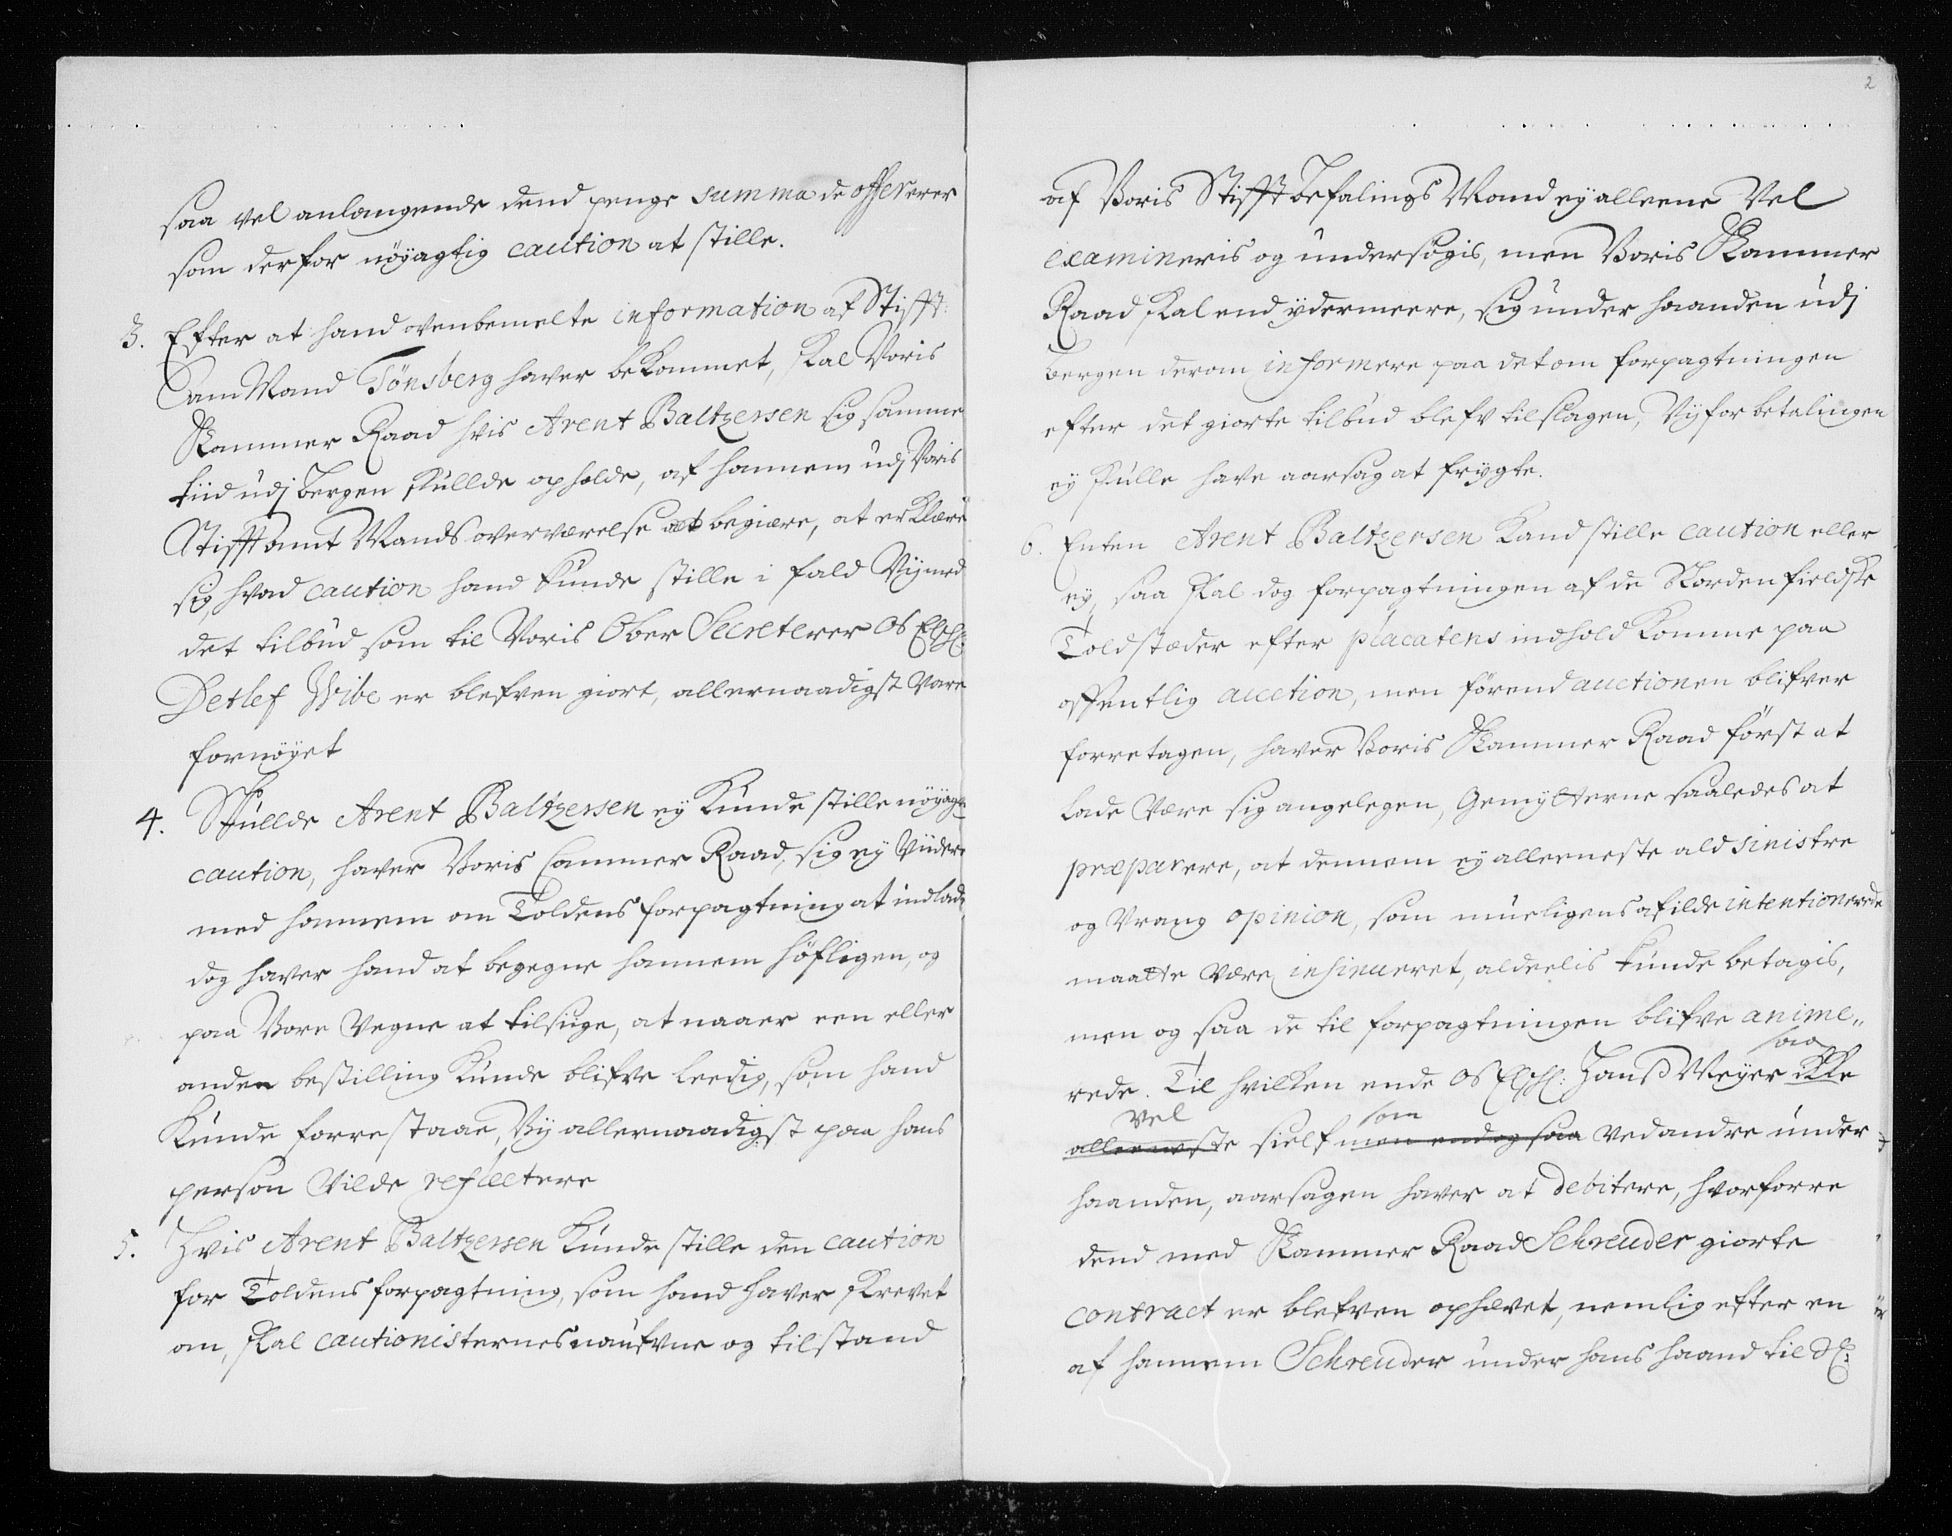 saa vel anlangende dend penge summa de offererer
som derfor nöyagtig caution at stille.
3. Efter at hand ovenbemelte information af Stifft
Amt Mand Tönsberg haver bekommet, skal Voris
Kammer Raad hvis Arent Baltzersen sig samme
tiid udj Bergen skullde opholde, af hannem udj Voris
Stifft amt Mands overværelse at begiære, at erklære
sig, hvad caution hand kunde stille i fald Vij med
det tilbud som til Voris Ober Secreterer Os Elsch:
Detlef Wibe er blefven giort, allernaadigst vare
fornöyet
4. Skullde Arent Baltzersen ey kunde stille nöyagtig
caution, haver Voris Cammer Raad, sig ey viidere
med hannem om Toldens forpagtning at indlade,
dog haver hand at begegne hannem höfligen, og
paa Vore Vegne at tilsige, at naaer een eller
anden bestilling kunde blifve leedig, som hand
kunde forrestaae, Vij allernaadigst paa hans
person vilde reflectere
5. Hvis Arent Baltzersen kunde stille den caution
for Toldens forpagtning, som hand haver skrevet
om, skal cautionisternes naufne og tilstand
2
af Voris Stifft befalings Mand ey alleene vel
examineris og undersøgis, men Voris Kammer
Raad skal end ydermeere, sig under haanden udj
Bergen derom informere paa det om forpagtningen
efter det giorte tilbud blefv tilslagen, Vij for betalingen
ey skulle have aarsag at frygte.
6. Enten Arent Baltzersen kand stille caution eller
ey, saa skal dog forpagtningen af de Nordenfieldske
Toldstæder efter placatens indhold komme paa
offentlig auction, men förend auctionen blifver
forretagen, haver Voris Kammer Raad först at
lade være sig angelegen, Gemytterne saaledes at
præparere, at dennem ey alleeneste ald sinistre
og vrang opinion, som mueligens af ilde intentionerede
maatte være insinueret, aldeelis kunde betagis,
men og saa de til forpagtningen blifve anime„
saa
rede. Til hvilken ende Os Elschl: Hanss Meyer ikke
vel som
alleeneste sielf men end og saa ved andre under
haanden, aarsagen haver at debitere, hvorforre
dend med Kammer Raad Schreuder giorte
contract er blefven ophævet, nemlig efter en
af hannem Schreuder under hans haand til